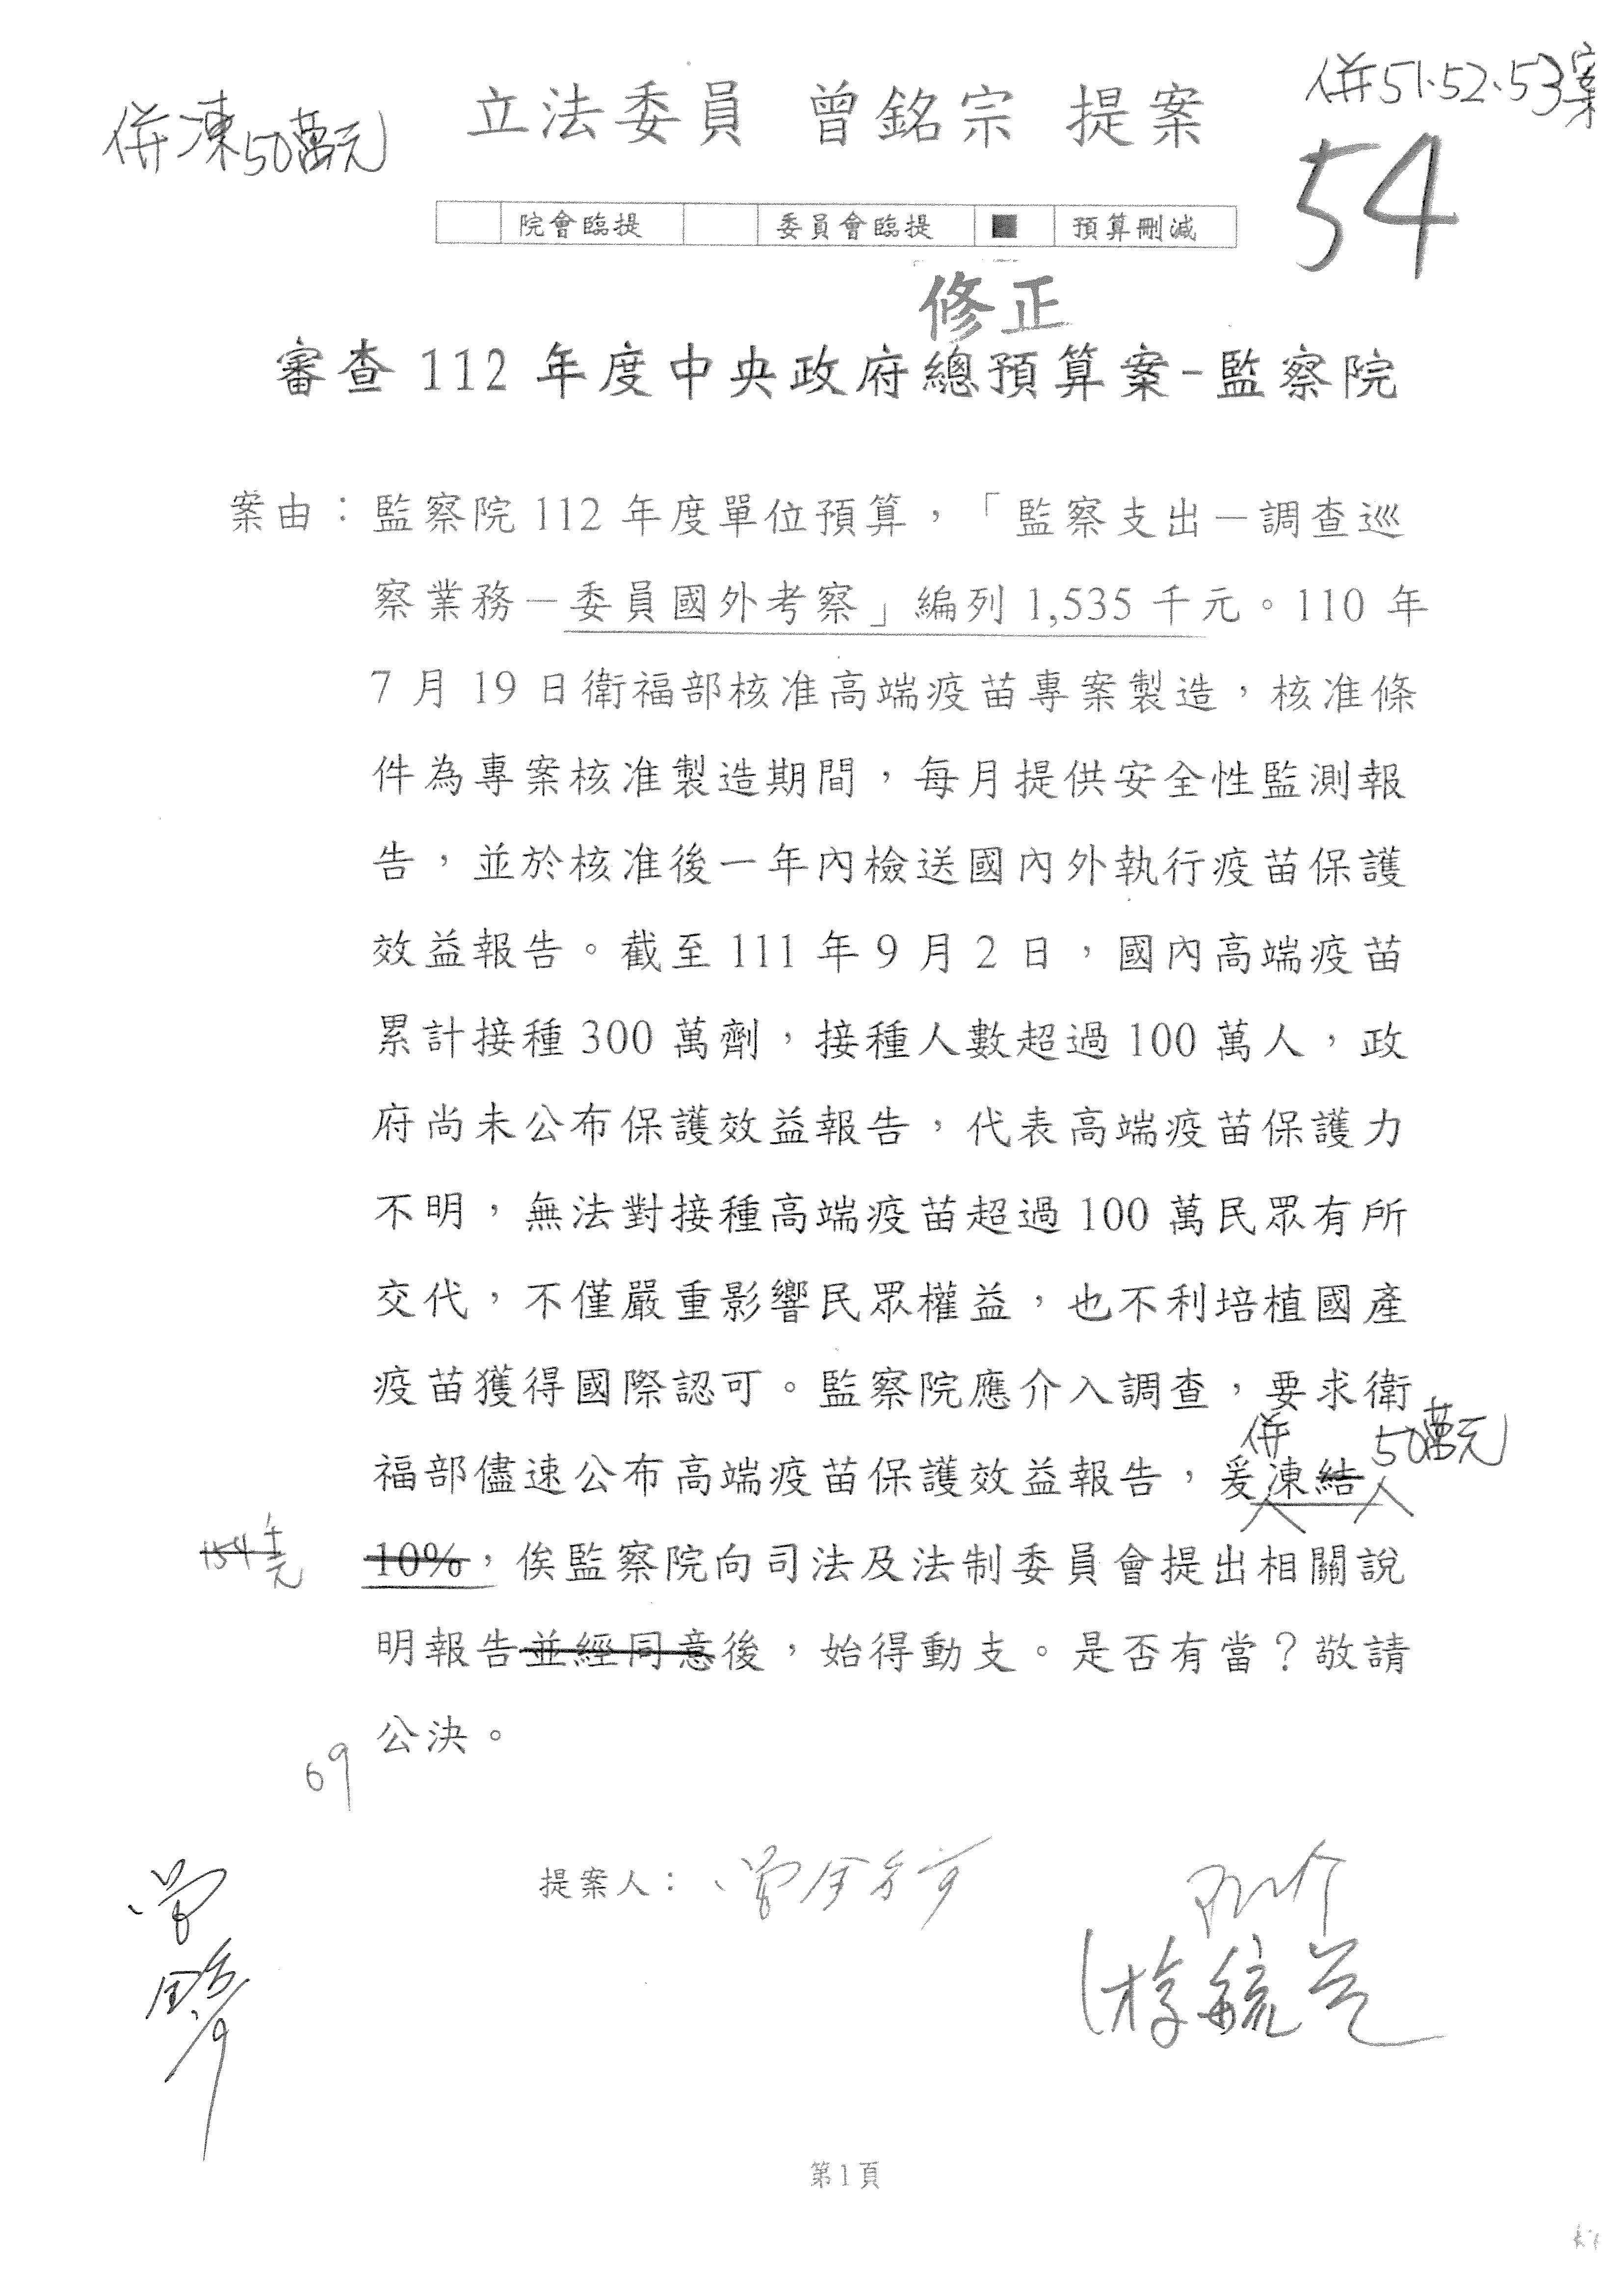 併51、52、53案
併凍50萬元
立法委員 曾銘宗 提案
54
院會臨提 委員會臨提 ■ 預算刪減
修正
審查 112 年度中央政府總預算案-監察院
案由：監察院 112 年度單位預算，「監察支出－調查巡
察業務－委員國外考察」編列 1,535 千元。110 年
7 月 19 日衛福部核准高端疫苗專案製造，核准條
件為專案核准製造期間，每月提供安全性監測報
告，並於核准後一年內檢送國內外執行疫苗保護
效益報告。截至 111 年 9 月 2 日，國內高端疫苗
累計接種 300 萬劑，接種人數超過 100 萬人，政
府尚未公布保護效益報告，代表高端疫苗保護力
不明，無法對接種高端疫苗超過 100 萬民眾有所
交代，不僅嚴重影響民眾權益，也不利培植國產
疫苗獲得國際認可。監察院應介入調查，要求衛
併 50萬元
福部儘速公布高端疫苗保護效益報告，爰凍結
154千元
10%，俟監察院向司法及法制委員會提出相關說
明報告並經同意後，始得動支。是否有當？敬請
公決。
69
提案人：
第1頁